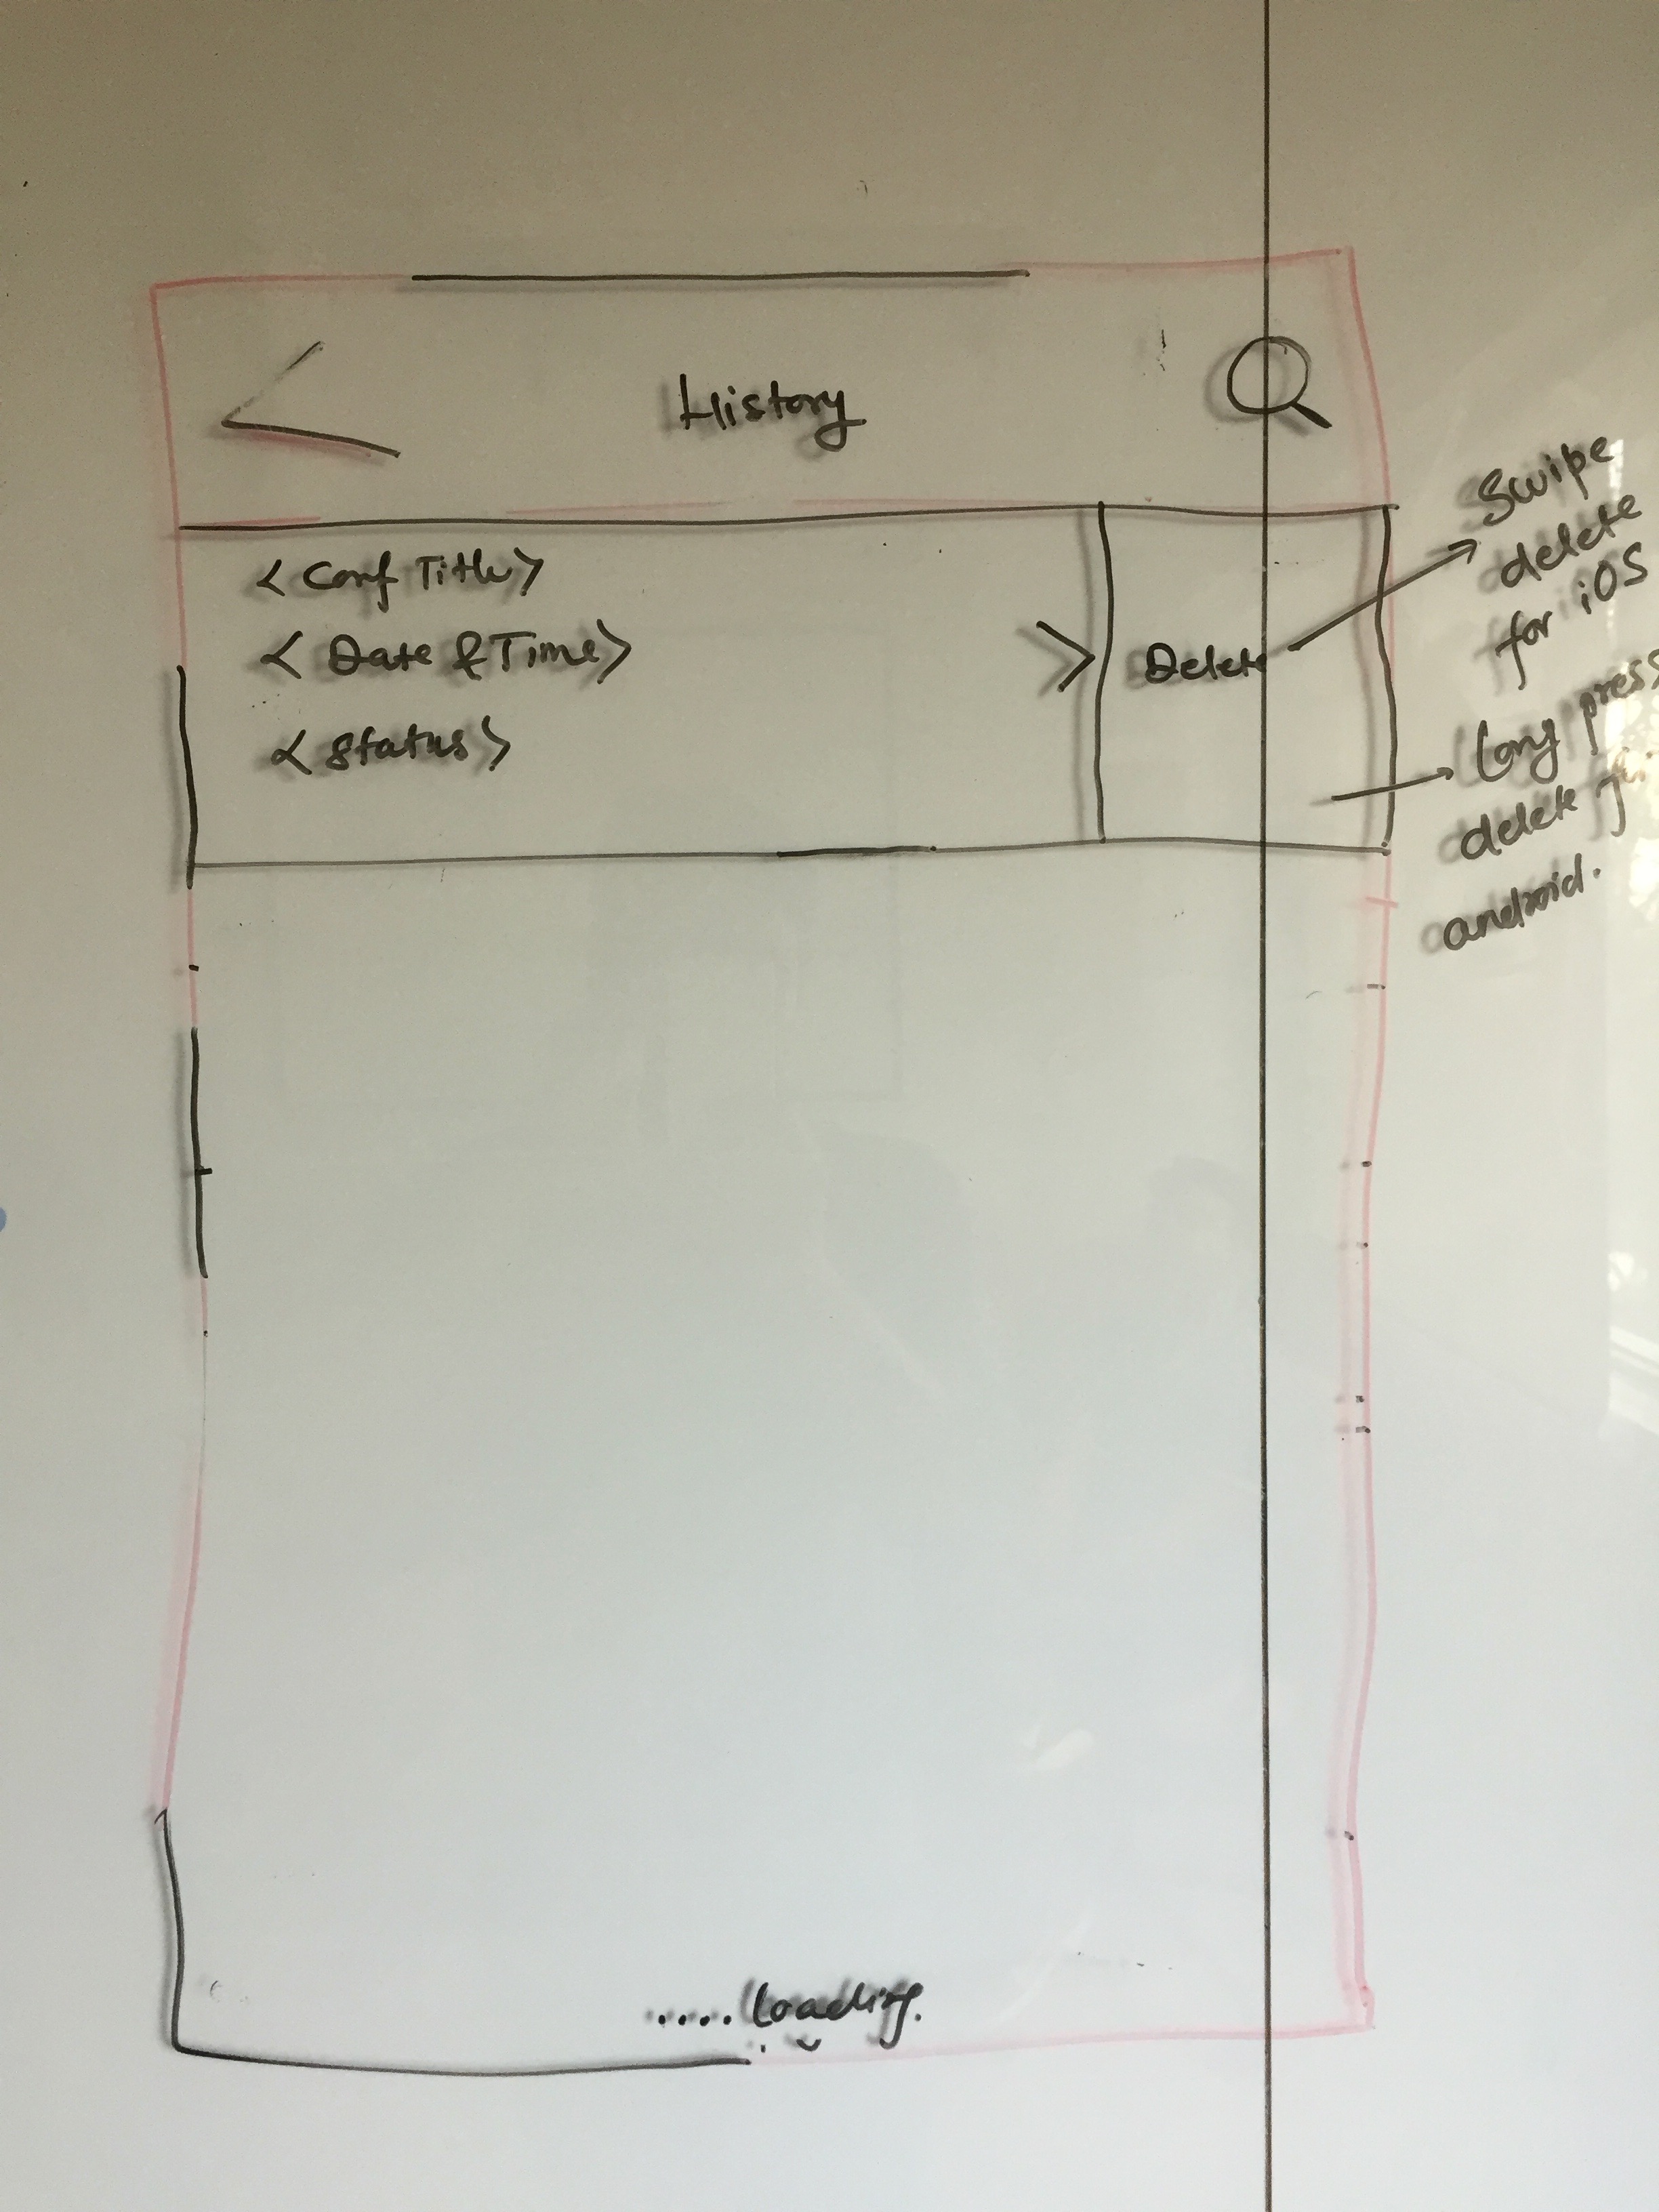 History
<Conf Title>
<Date & Time>
<Status>
Delete
Swipe
delete
for iOS
Long press
delete
android.
.....Loading.